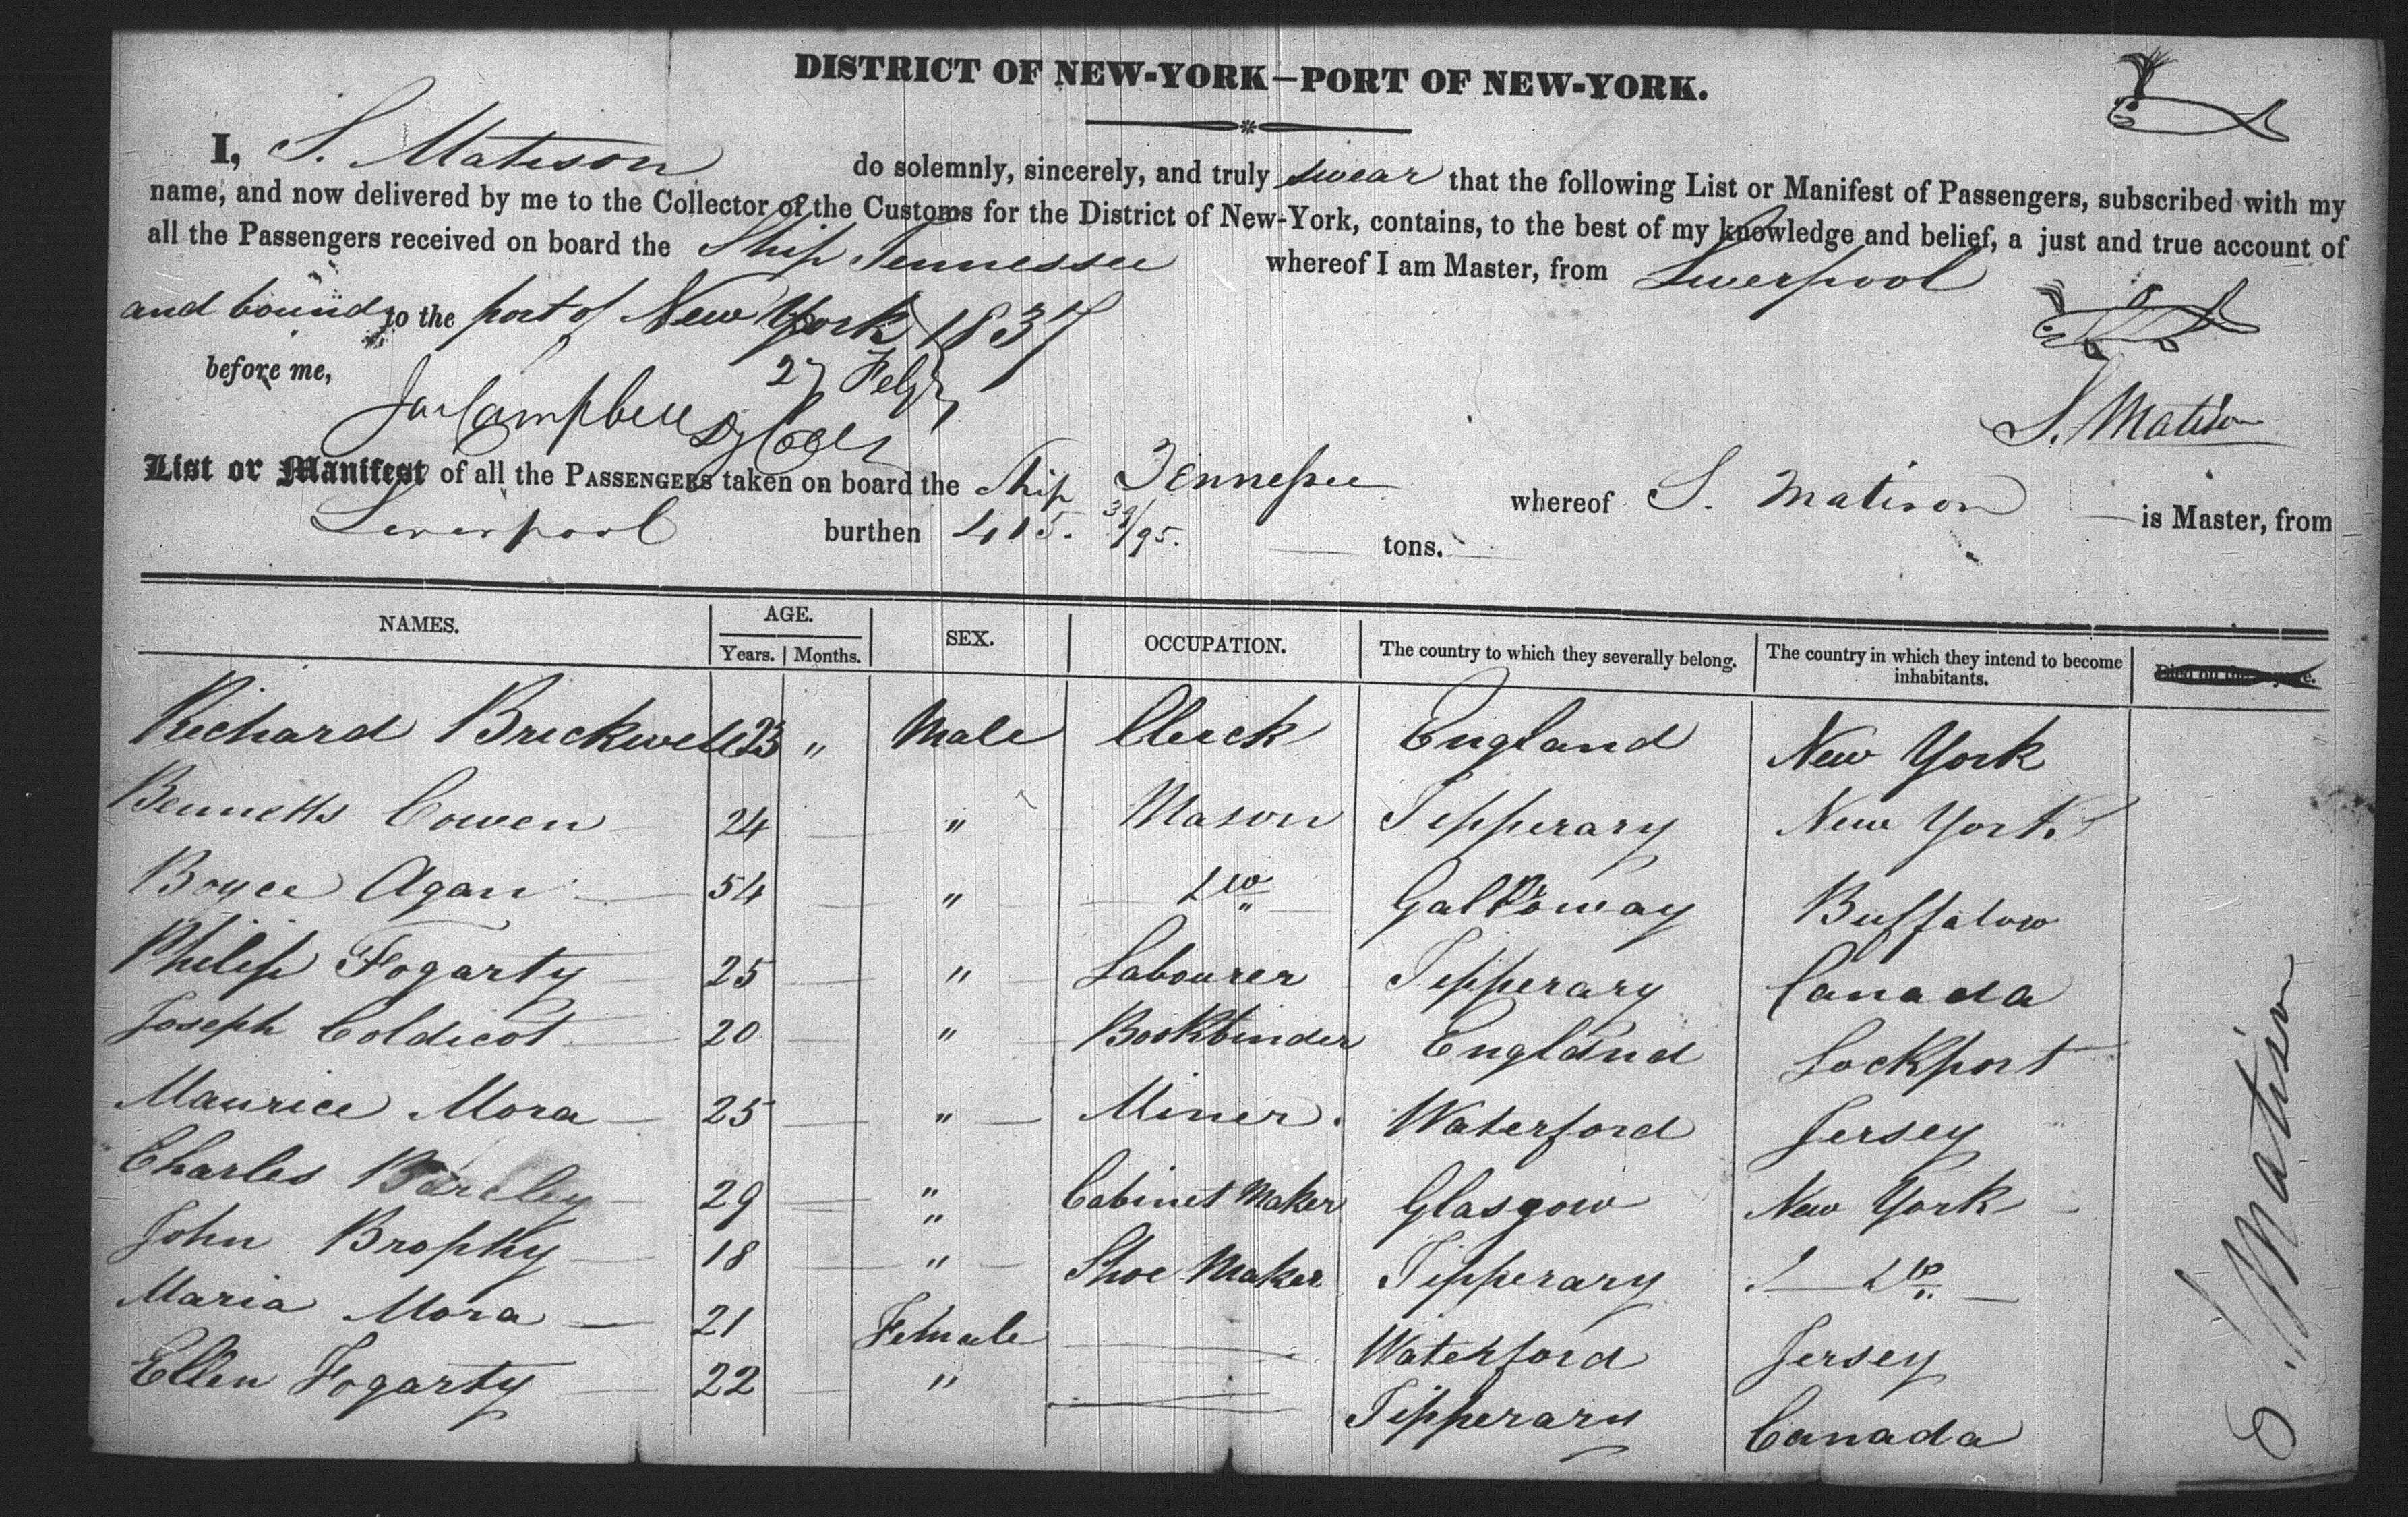 DISTRICT OF NEW-YORK—PORT OF NEW-YORK.
I, S. Matison do solemnly, sincerely, and truly swear that the following List or Manifest of Passengers, subscribed with my
name, and now delivered by me to the Collector of the Customs for the District of New-York, contains, to the best of my knowledge and belief, a just and true account of
all the Passengers received on board the Ship Tennessee whereof I am Master, from Liverpool
and bound to the port of New York 1837
27 Feby
before me,
Jas Campbell Dy Coll
S. Matison
List or Manifest of all the PASSENGERS taken on board the Ship Tennessee whereof S. Matison is Master, from
Liverpool burthen 415. 39/95. tons.
NAMES. AGE. SEX. OCCUPATION. The country to which they severally belong. The country in which they intend to become inhabitants.
Years. Months.
Richard Brickwell 23 " Male Clerck England New York
Bennetts Cowen 24 " Mason Tipperary New York
Boyce Agan 54 " Do Galloway Buffalow
Philip Fogarty 25 " Labourer Tipperary Canada
Joseph Coldicot 20 " Bookbinder England Lockport
Maurice Mora 25 " Miner. Waterford Jersey
Charles Barcley 29 " Cabinet Maker Glasgow New York
"
John Brophy 18 " Shoe Maker Tipperary Do
Maria Mora 21 Female Waterford Jersey
Ellen Fogarty 22 " Tipperary Canada
S. Matison